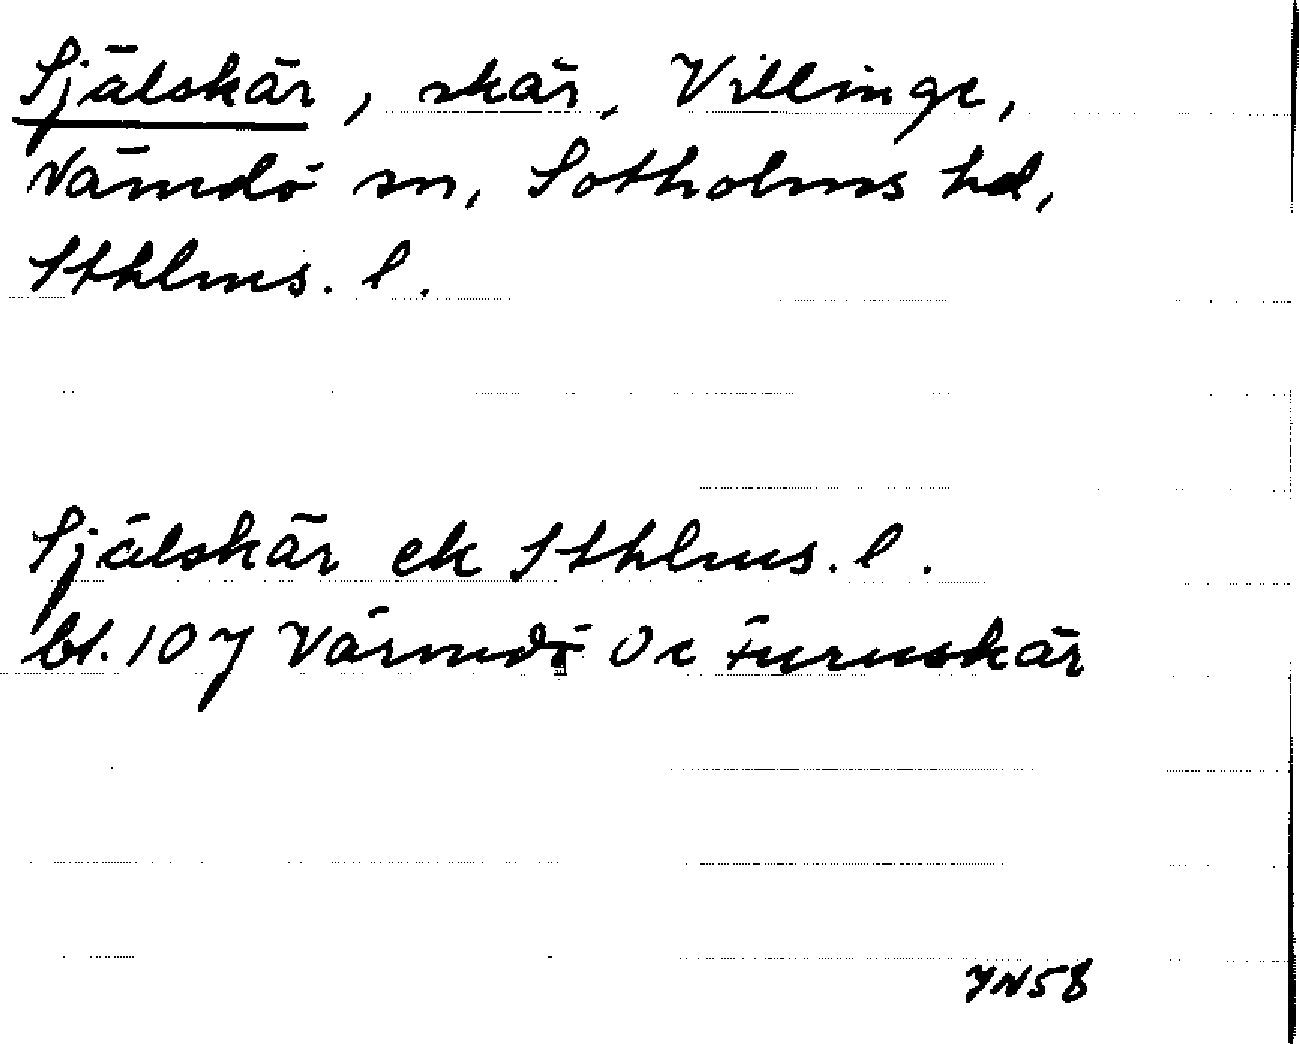 Själskär, skär, Villinge,
Vämdö sn, Sotholms hd,
Sthlms. l.
Själskär ek Sthlms. l.
bl. 107 Värmdö Oc Furuskär
YN58